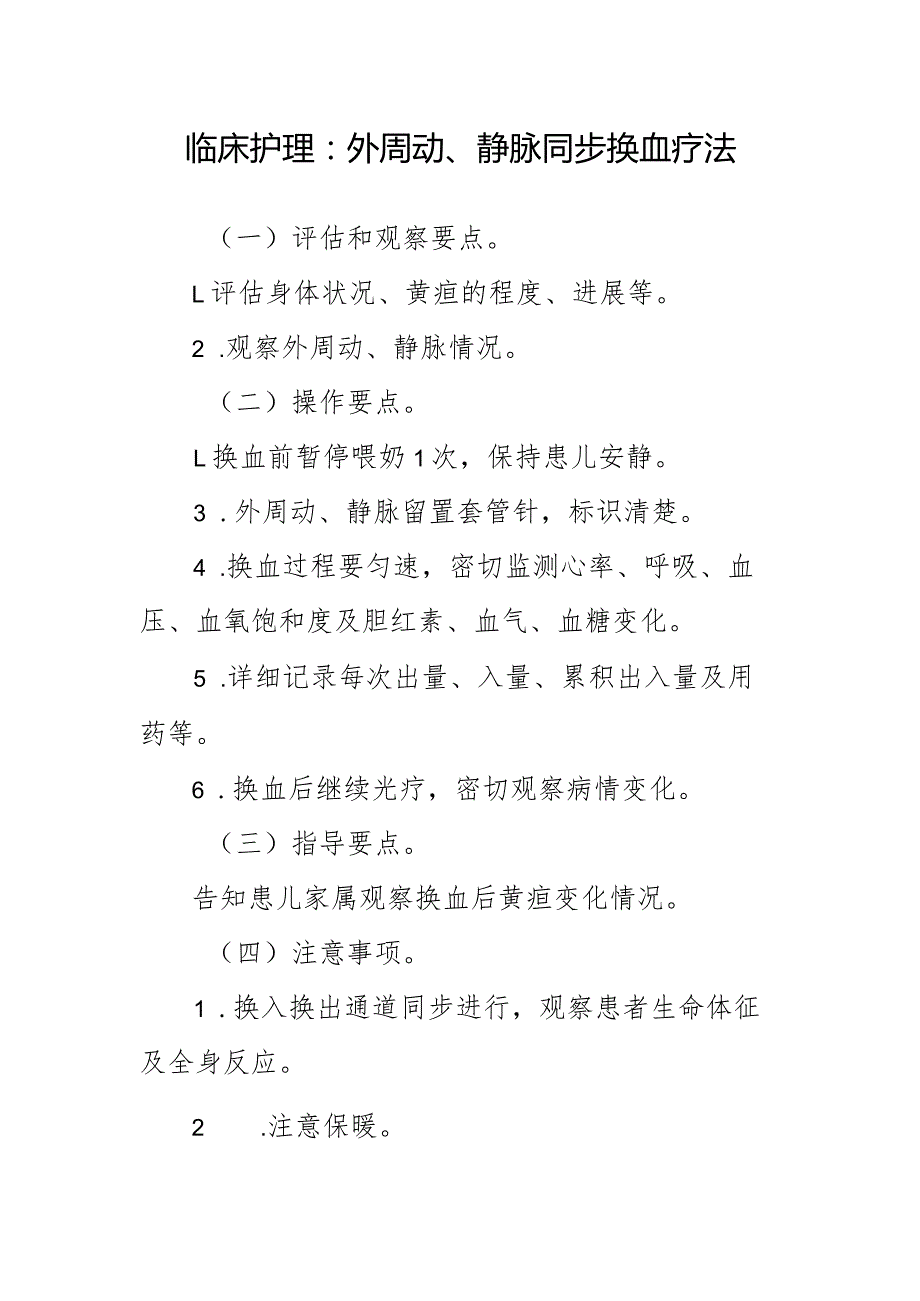 临床护理：外周动、静脉同步换血疗法
（一）评估和观察要点。
L评估身体状况、黄疸的程度、进展等。
2 .观察外周动、静脉情况。
（二）操作要点。
L换血前暂停喂奶1次，保持患儿安静。
3 .外周动、静脉留置套管针，标识清楚。
4 .换血过程要匀速，密切监测心率、呼吸、血
压、血氧饱和度及胆红素、血气、血糖变化。
5 .详细记录每次出量、入量、累积出入量及用
药等。
6 .换血后继续光疗，密切观察病情变化。
（三）指导要点。
告知患儿家属观察换血后黄疸变化情况。
（四）注意事项。
1 .换入换出通道同步进行，观察患者生命体征
及全身反应。
2 .注意保暖。